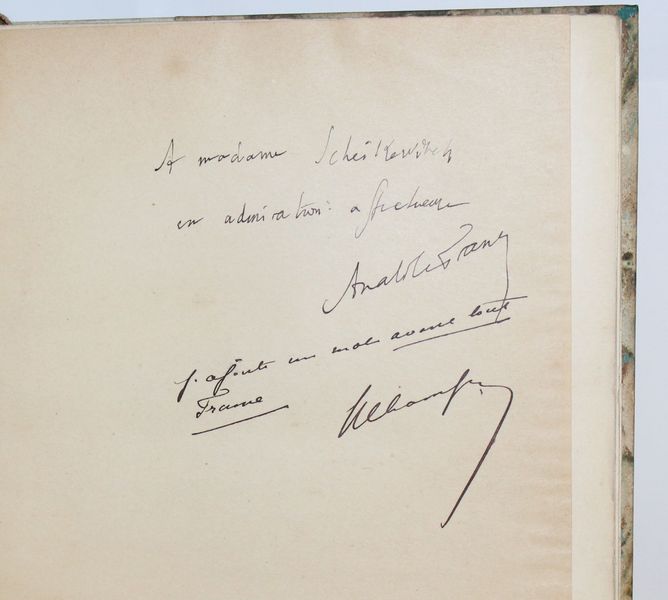 A madame Scheikevitch
en admiration affectueuse
Anatole France
j'ajoute un mot avant tout
France